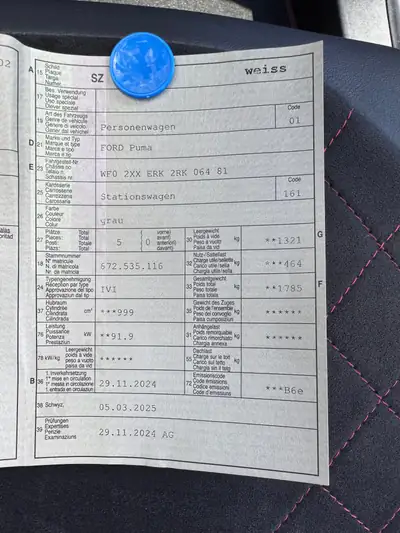 02
A 15 Schild Plaque Targa Nummer SZ weiss
17 Bes. Verwendung Usage spécial Uso speciale Diever spezial
19 Art des Fahrzeugs Genre de véhicule Genere di veicolo Personenwagen Code 01
D 21 Marke und Typ Marque et type Marca e tipo Marca e tip FORD Puma
E 23 Fahrgestell-Nr. Châssis no Telaio n. Schassis nr. WF0 2XX ERK 2RK 064 81
25 Karosserie Carrosserie Carrozzeria Carossaria Stationswagen Code 161
26 Farbe Couleur Colore Colur grau
27 Plätze: Total Places: Total Posti: Totale Plazs: Total 5 0 vorne) avant) anteriori) davant)
30 Leergewicht Poids à vide Peso a vuoto Paisa da vid kg **1321 G
18 Stammnummer N° matricule N. matricola Nr. da matricla 672.535.116
32 Nutz-/Sattellast kg ***464
24 Typengenehmigung Réception par type Approvazione del tipo Approvaziun dal tip IVI
33 Gesamtgewicht Poids total Peso totale Paisa totala kg **1785 F
37 Hubraum Cylindrée Cilindrata Cilindrada cm³ ***999
35 Gewicht des Zuges Poids de l'ensemble Peso del convoglio Paisa cumposiziun kg ******
76 Leistung Puissance Potenza Prestaziun kW **91.9
31 Anhängelast Poids remorquable Carico rimorchiato Chargia annexa kg ******
78 kW/kg Leergewicht poids à vide peso a vuoto paisa da vid ******
55 Dachlast Charge sur le toit Carico sul tetto Chargia sin il tetg kg ******
B 36 1. Inverkehrsetzung 1re mise en circulation 1a messa in circolazione 1. entrada en circulaziun 29.11.2024
72 Emissionscode Code émissions Codice emissioni Code d'emissiuns ***B6e
38 Schwyz, 05.03.2025
39 Prüfungen Expertises Perizie Examinaziuns 29.11.2024 AG